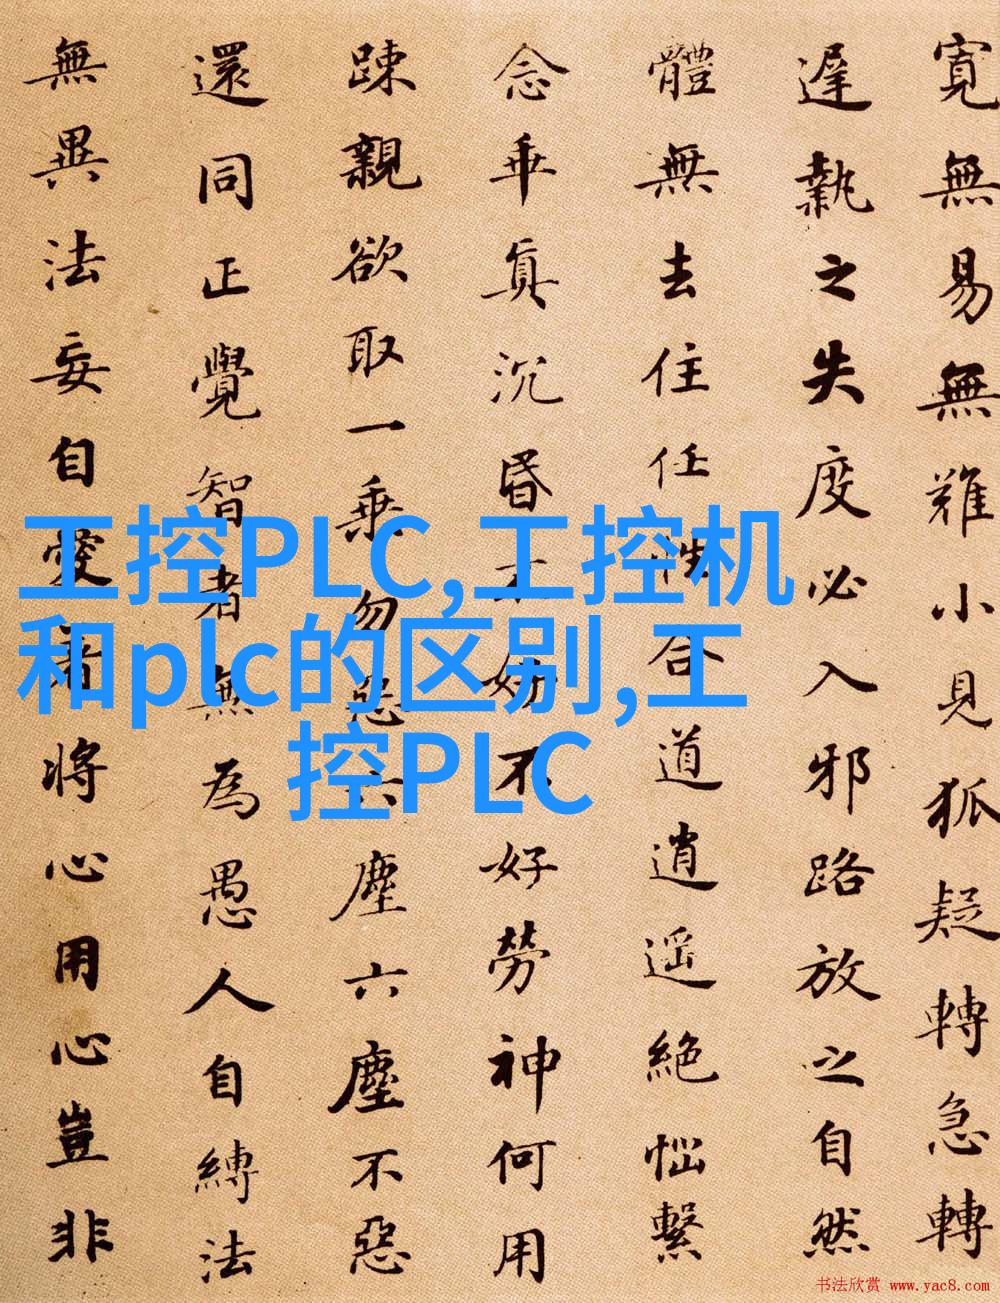 寬無易無難小見狐疑轉急轉
遲執之失度必入邪路放之自然
體無去住任性合道逍遙絕惱繫
念乖真沉昏不好不好勞神何用
踈親欲取一乘勿惡六塵六塵不惡
還同正覺智者無為愚人自縛法
無異法妄自愛著將心用心豈非
工控PLC,工控机
和plc的区别,工
控PLC
书法欣赏 www.yac8.com